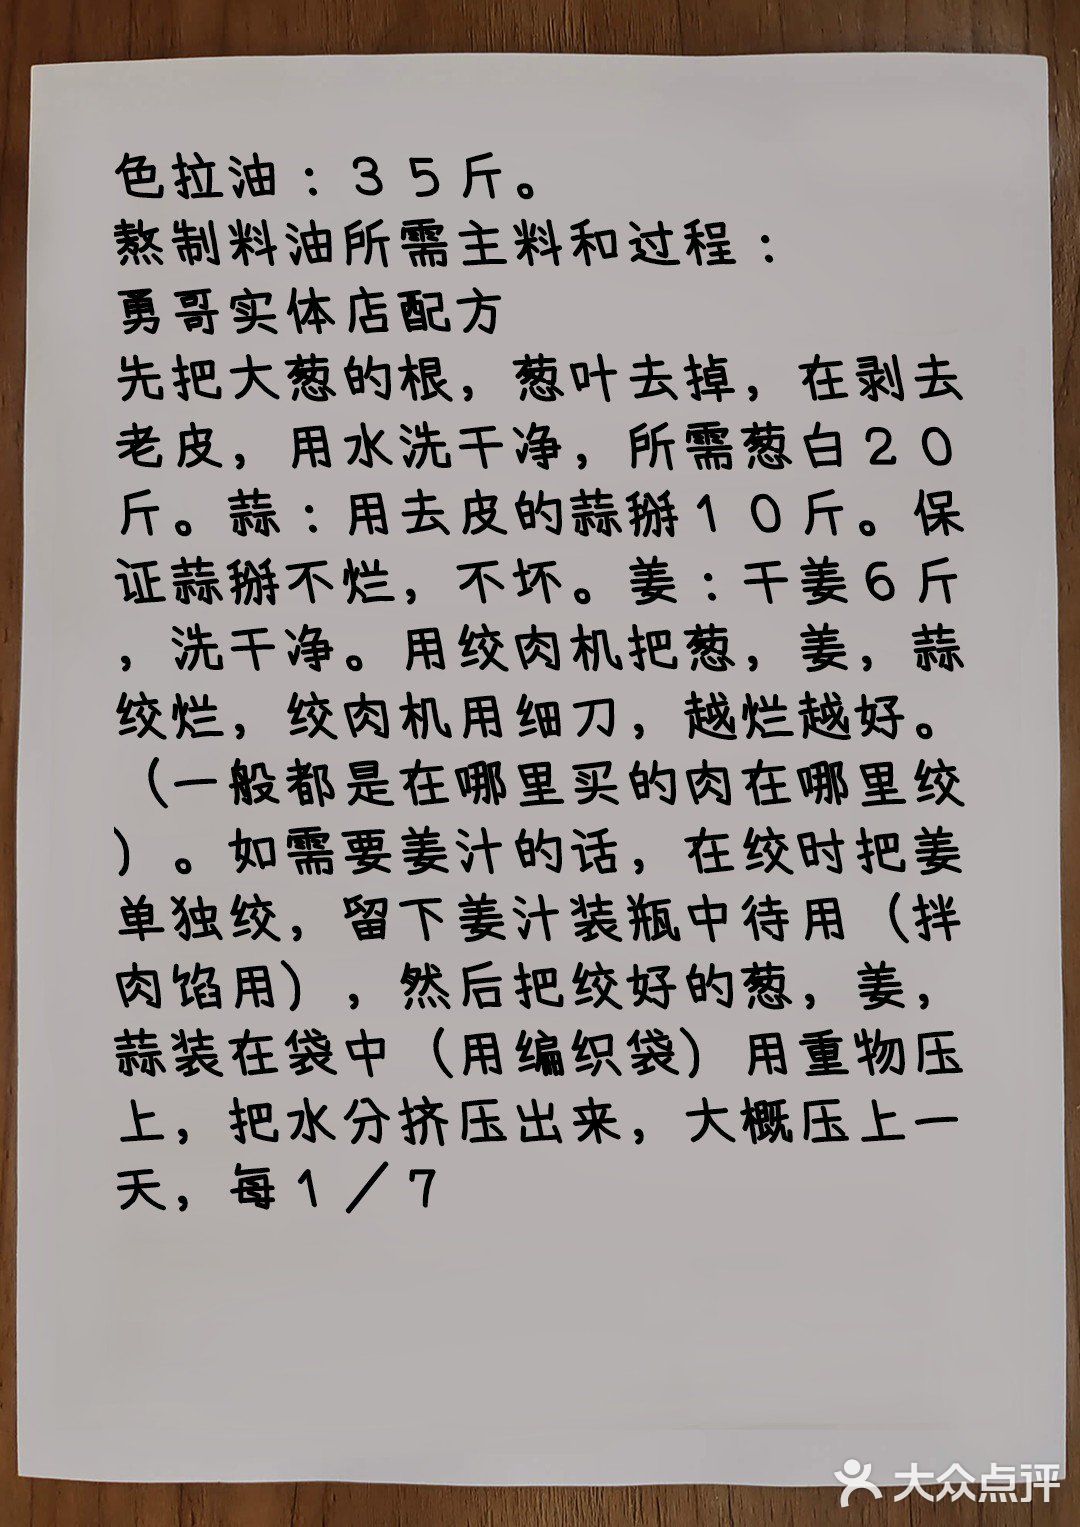 色拉油：35斤。
熬制料油所需主料和过程：
勇哥实体店配方
先把大葱的根，葱叶去掉，在剥去
老皮，用水洗干净，所需葱白20
斤。蒜：用去皮的蒜掰10斤。保
证蒜掰不烂，不坏。姜：干姜6斤
，洗干净。用绞肉机把葱，姜，蒜
绞烂，绞肉机用细刀，越烂越好。
（一般都是在哪里买的肉在哪里绞
）。如需要姜汁的话，在绞时把姜
单独绞，留下姜汁装瓶中待用（拌
肉馅用），然后把绞好的葱，姜，
蒜装在袋中（用编织袋）用重物压
上，把水分挤压出来，大概压上一
天，每1／7
大众点评